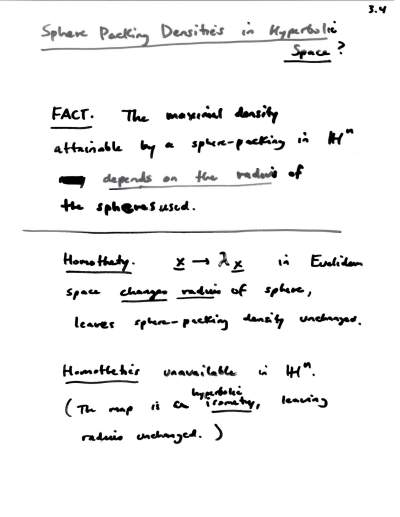 3.4
Sphere Packing Densities in Hyperbolic
Space?
FACT. The maximal density
attainable by a sphere-packing in ℍⁿ
depends on the radius of
the spheres used.
Homothety. x → λx in Euclidean
space changes radius of sphere,
leaves sphere-packing density unchanged.
Homotheties unavailable in ℍⁿ.
hyperbolic
(The map is a isometry, leaving
radius unchanged.)